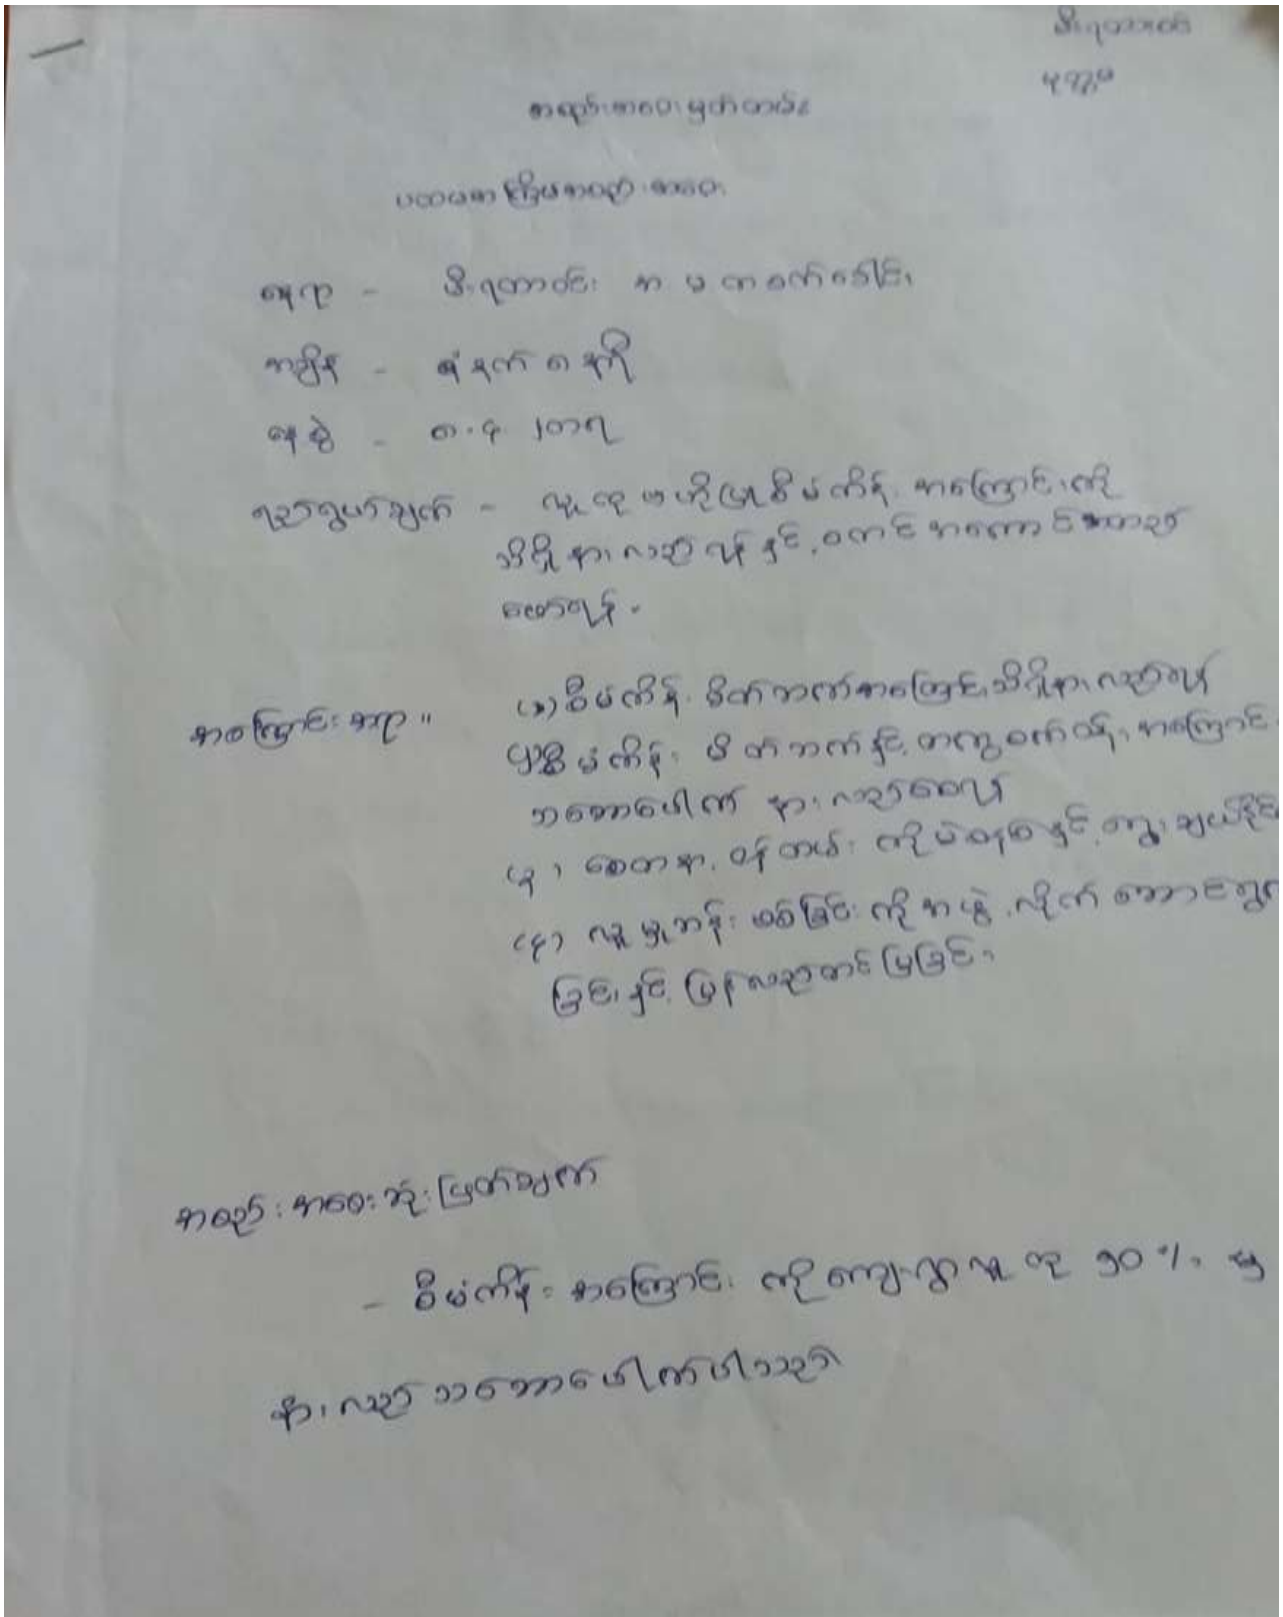 မီးရထားဝင်း
မုတ္တမ
အစည်းအဝေးမှတ်တမ်း
ပထမအကြိမ်အစည်းအဝေး
နေရာ - မီးရထားဝင်း အ မ က ခေါင်း
အချိန် - မံနက် ၈ နာရီ
နေ့စွဲ - ၈.၄.၂၀၁၇
ရည်ရွယ်ချက် - လူထုဗဟိုပြုစီမံကိန်း အကြောင်းကို
သိရှိနားလည်ရန်နှင့် အကောင်အထည်
ဖော်ရန်။
အကြောင်းအရာ။ (၁) စီမံကိန်း မိတ်ဘက်အကြောင်းသိရှိနားလည်ရန်
(၂) စီမံကိန်း မိတ်ဘက်နှင့် အကြောင်း
သဘောပေါက် နားလည်စေရန်
(၃) စေတနာ့ ဝန်ထမ်း ကိုမဲစနစ်နှင့် ရွေးချယ်နိုင်
(၄) လူမှုဆန်းစစ်ခြင်းကို အဖွဲ့လိုက် ဆောင်ရွက်
ခြင်းနှင့် ပြန်လည်တင်ပြခြင်း
အစည်းအဝေးဆုံးဖြတ်ချက်
- စီမံကိန်း အကြောင်းကို ကျေးရွာလူထု ၅၀% မှ
နားလည်သဘောပေါက်ပါသည်